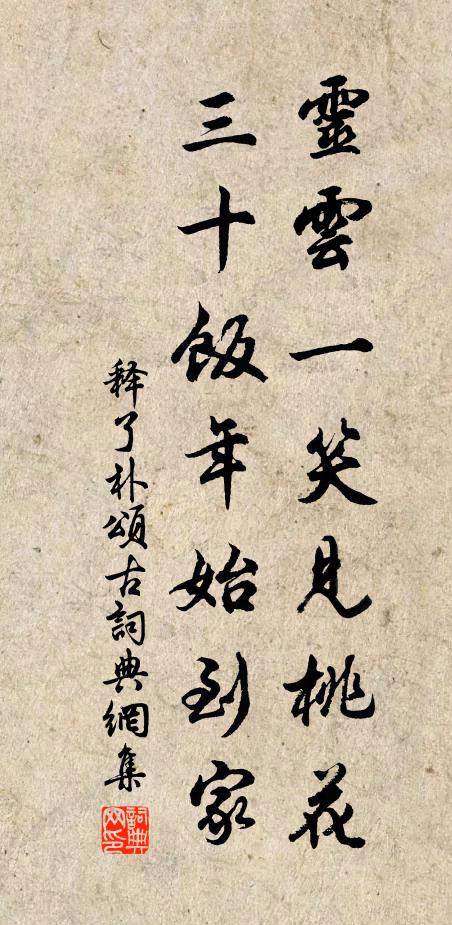 靈雲一笑見桃花
三十飯年始到家
释了朴頌古詞典網集
詞典網印